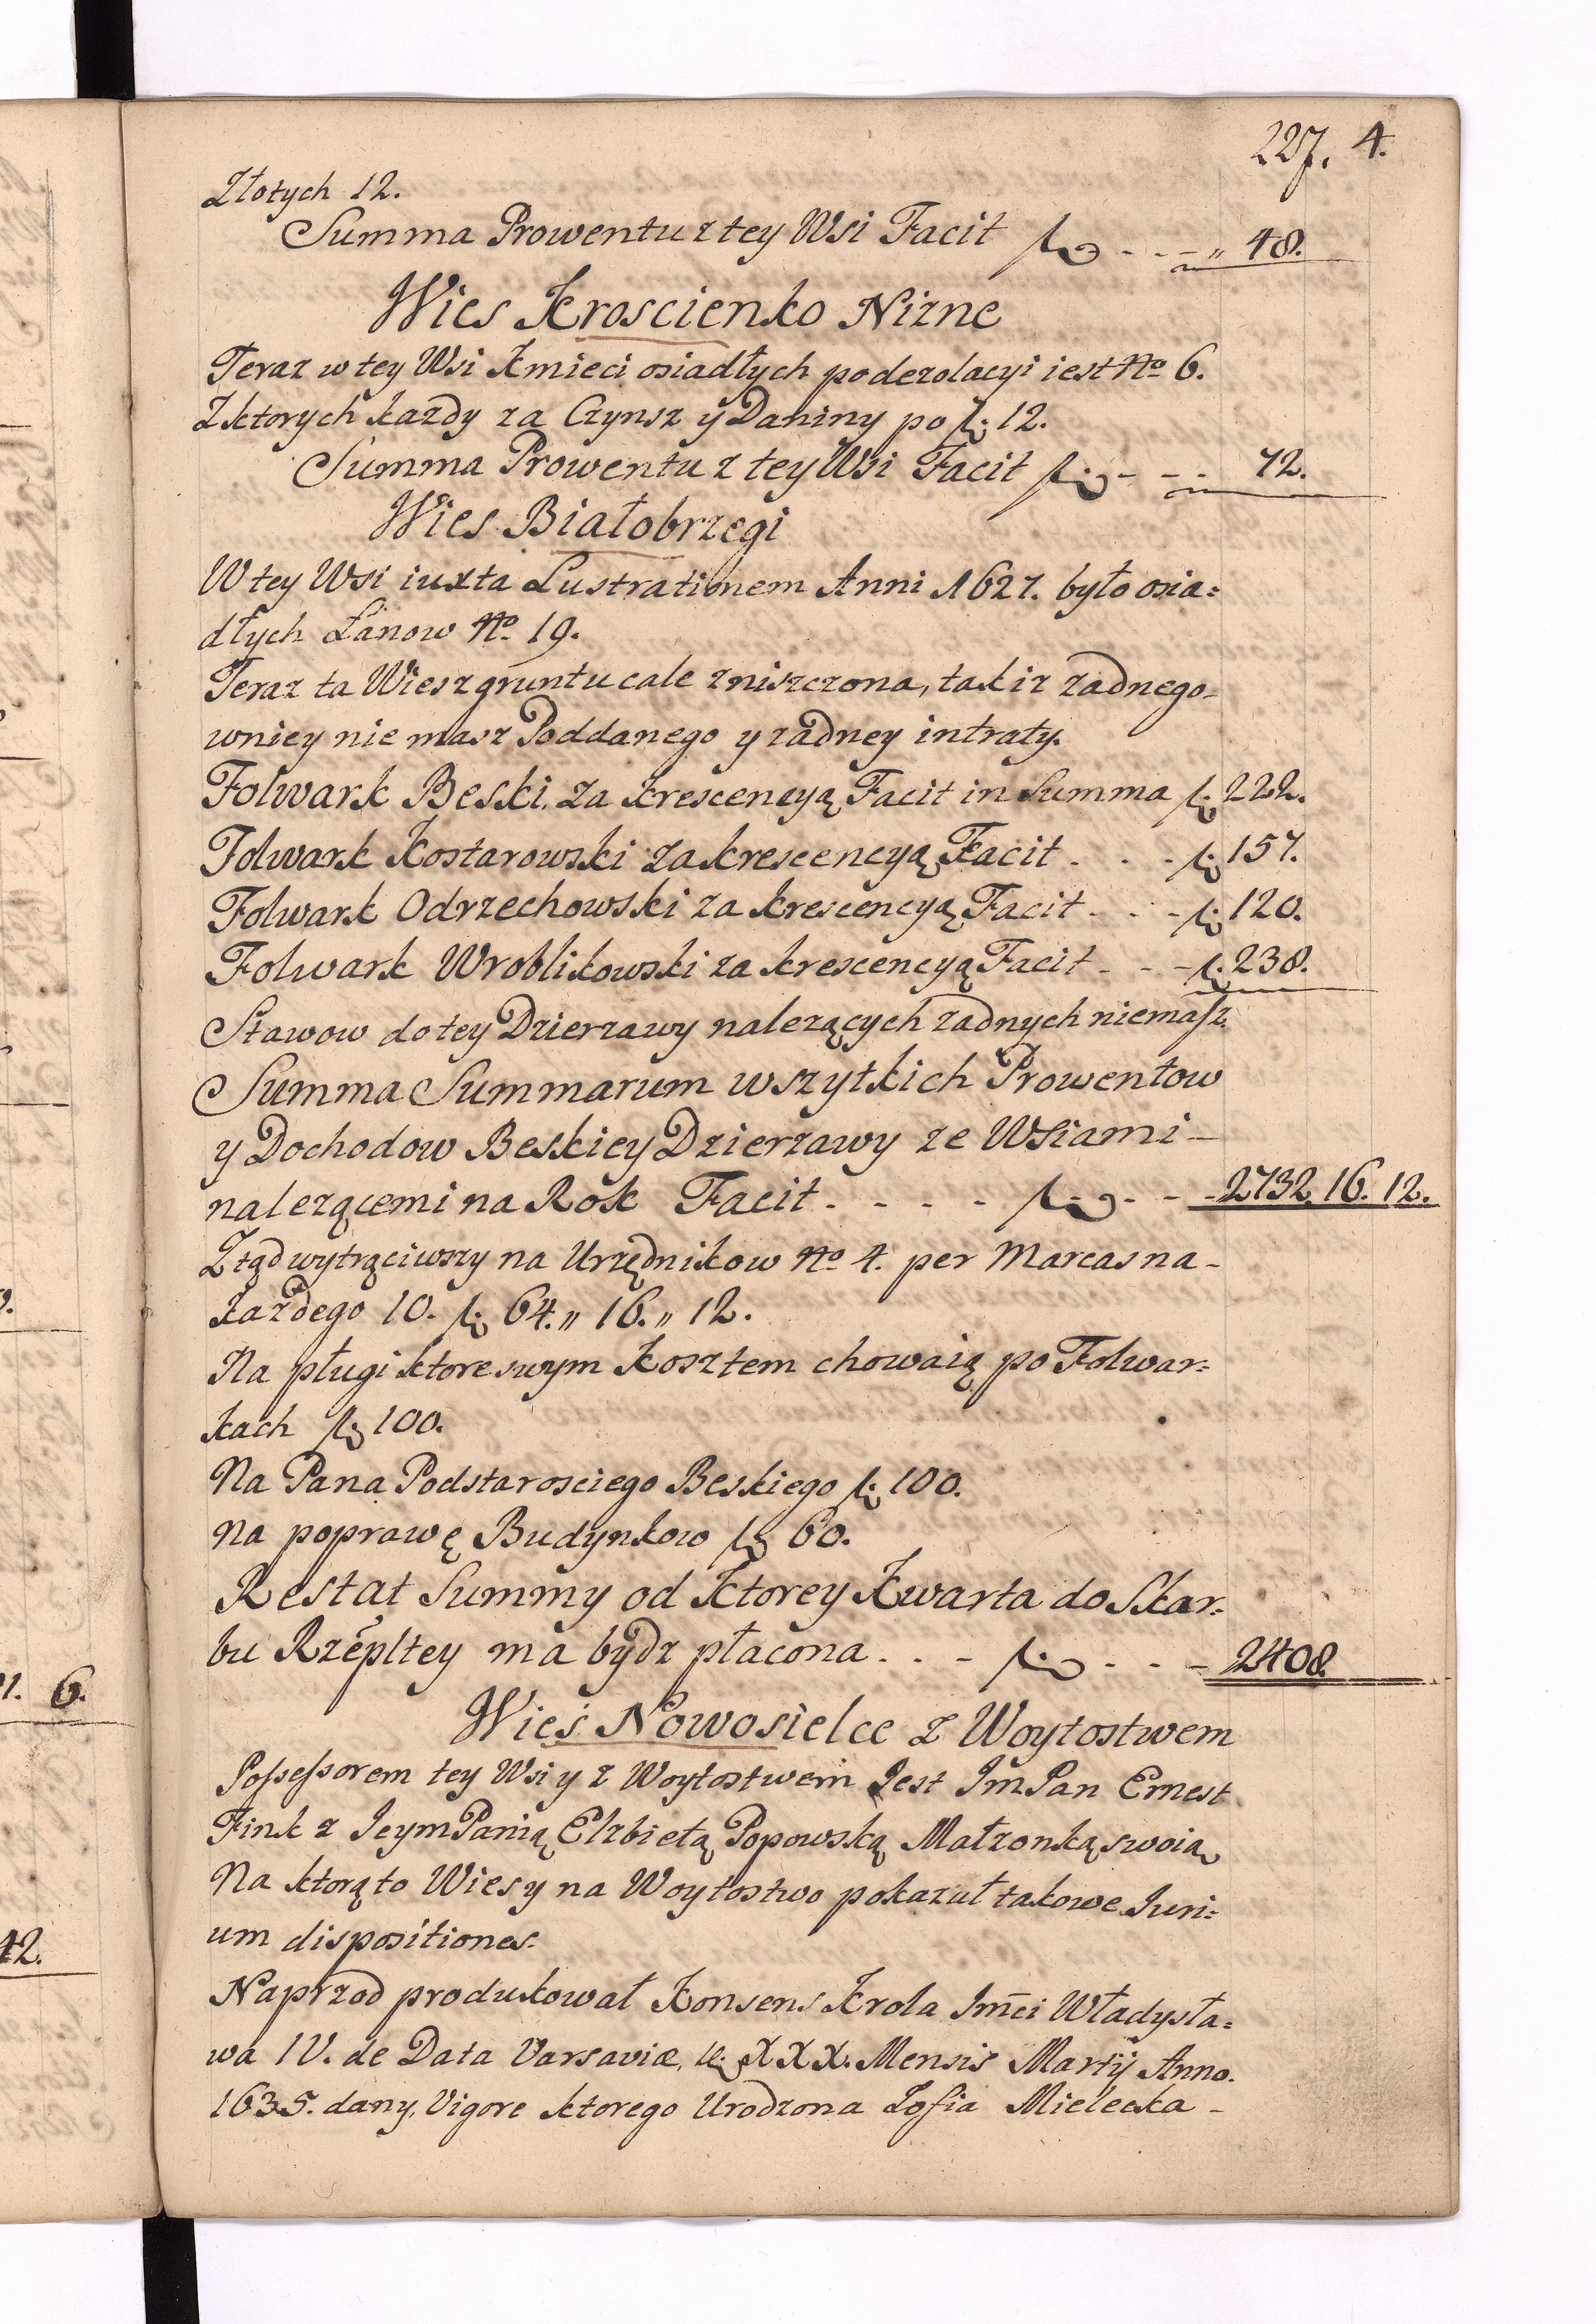 227. 4.
Złotych 12.
Summa Prowentu z tey Wsi Facit fl. - - - „ 48.
Wies Kroscienko Nizne
Teraz w tey Wsi Kmieci osiadłych po dezolacyi iest No 6.
Z ktorych kazdy za Czynsz y Daniny po fl. 12.
Summa Prowentu z tey Wsi Facit fl. - - - 72.
Wies Białobrzegi
W tey Wsi iuxta Lustrationem Anni 1627. było osia=
dłych Łanow No. 19.
Teraz ta Wies z gruntu cale zniszczona, tak iz zadnego-
wniey nie masz Poddanego y zadney intraty.
Folwark Beski. za krescencyą Facit in Summa fl. 222.
Folwark Kostarowski za krescencyą Facit . . - fl. 157.
Folwark Odrzechowski za krescencyą Facit - - - fl. 120.
Folwark Wroblikowski za krescencyą Facit - - - fl. 238.
Stawow do tey Dzierzawy nalezących zadnych niemasz.
Summa Summarum wszytkich Prowentow
y Dochodow Beskiey Dzierzawy ze Wsiami -
nalezącemi na Rok Facit . - - - fl. - - - 2732. 16. 12.
Ztąd wytrąciwszy na Urzędnikow No 4. per Marcas na -
każdego 10. fl. 64. „ 16. „ 12.
Na pługi ktore swym Kosztem chowaią po Folwar=
kach fl. 100.
Na Pana Podstarosciego Beskiego fl. 100.
Na poprawę Budynkow fl. 60.
Restat Summy od Ktorey Kwarta do Skar=
bu Rzépltey ma bydz płacona . . - fl. - - - 2408.
Wieś Nowosielce z Woytostwem
Possessorem tey Wsi y z Woytostwem Jest ImPan Ernest
Fink z JeymPanią Elzbietą Popowską Małzonką swoią
Na ktorą to Wies y na Woytostwo pokazał takowe Juri=
um dispositiones:
Naprzod produkował Konsens Krola Jmci Władysła=
wa IV. de Data Varsaviæ, XXX. Mensis Martij Anno.
1635. dany, Vigore ktorego Urodzona Zofia Mielecka -